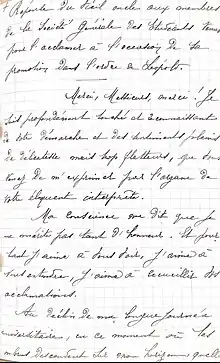 Réponse du vieil oncle aux membres
de la Société Générale des Étudiants venus
pour l'acclamer à l'occasion de sa
promotion dans l'ordre de Léopold.
Merci, Messieurs, merci ! Je
suis profondément touché et reconnaissant
de votre démarche et des sentiments pleins
de délicatesse mais trop flatteurs, que vous
venez de m'exprimer par l'organe de
votre éloquent interprète.
Ma conscience me dit que je
ne mérite pas tant d'honneur. Et pour-
tant j'aime à vous voir, j'aime à
vous entendre, j'aime à recueillir vos
acclamations.
Au déclin de ma longue journée
universitaire, en ce moment où les
ombres descendent sur mon horizon